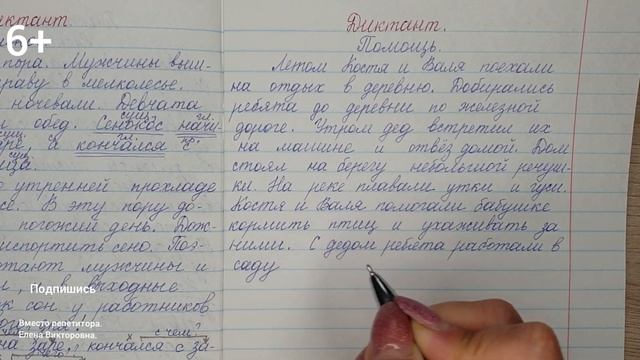 6+
диктант
пора. Мужчины выш-
траву в мелколесье.
ночевали. Девчата
обед. Сенокос начи-
сущ. гл.
заре, а кончался с
утренней прохладе
В эту пору до-
погожий день. Дож-
испортить сено. Поэ-
мужчины и
выходные
сон у работников
с чем?
на заре, кончался с за-
Подпишись
Вместо репетитора.
Елена Викторовна.
Диктант.
Помощь.
Летом Костя и Валя поехали
на отдых в деревню. Добирались
ребята до деревни по железной
дороге. Утром дед встретил их
на машине и отвёз домой. Дом
стоял на берегу небольшой речуш-
ки. На реке плавали утки и гуси.
Костя и Валя помогали бабушке
кормить птиц и ухаживать за
ними. С дедом ребята работали в
саду